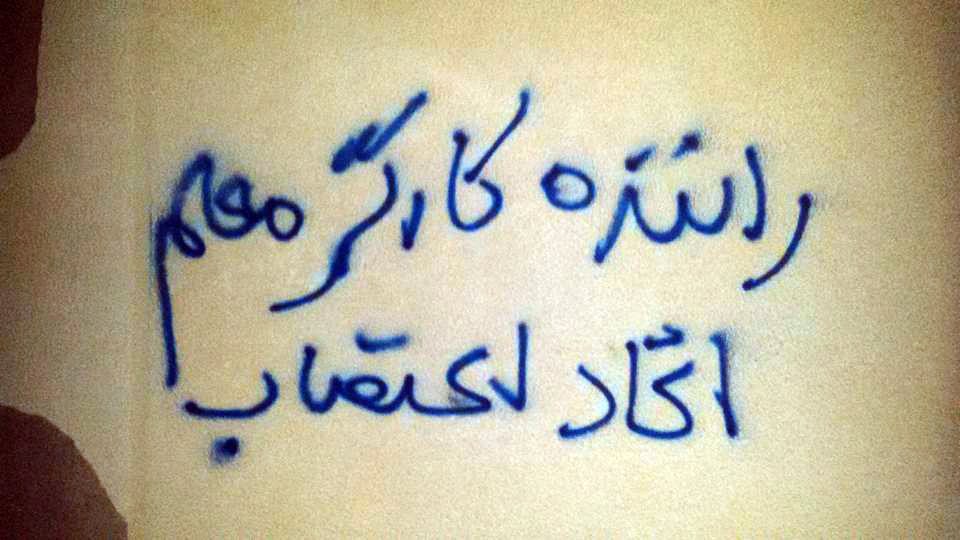 راننده کارگر معلم
اتحاد اعتصاب